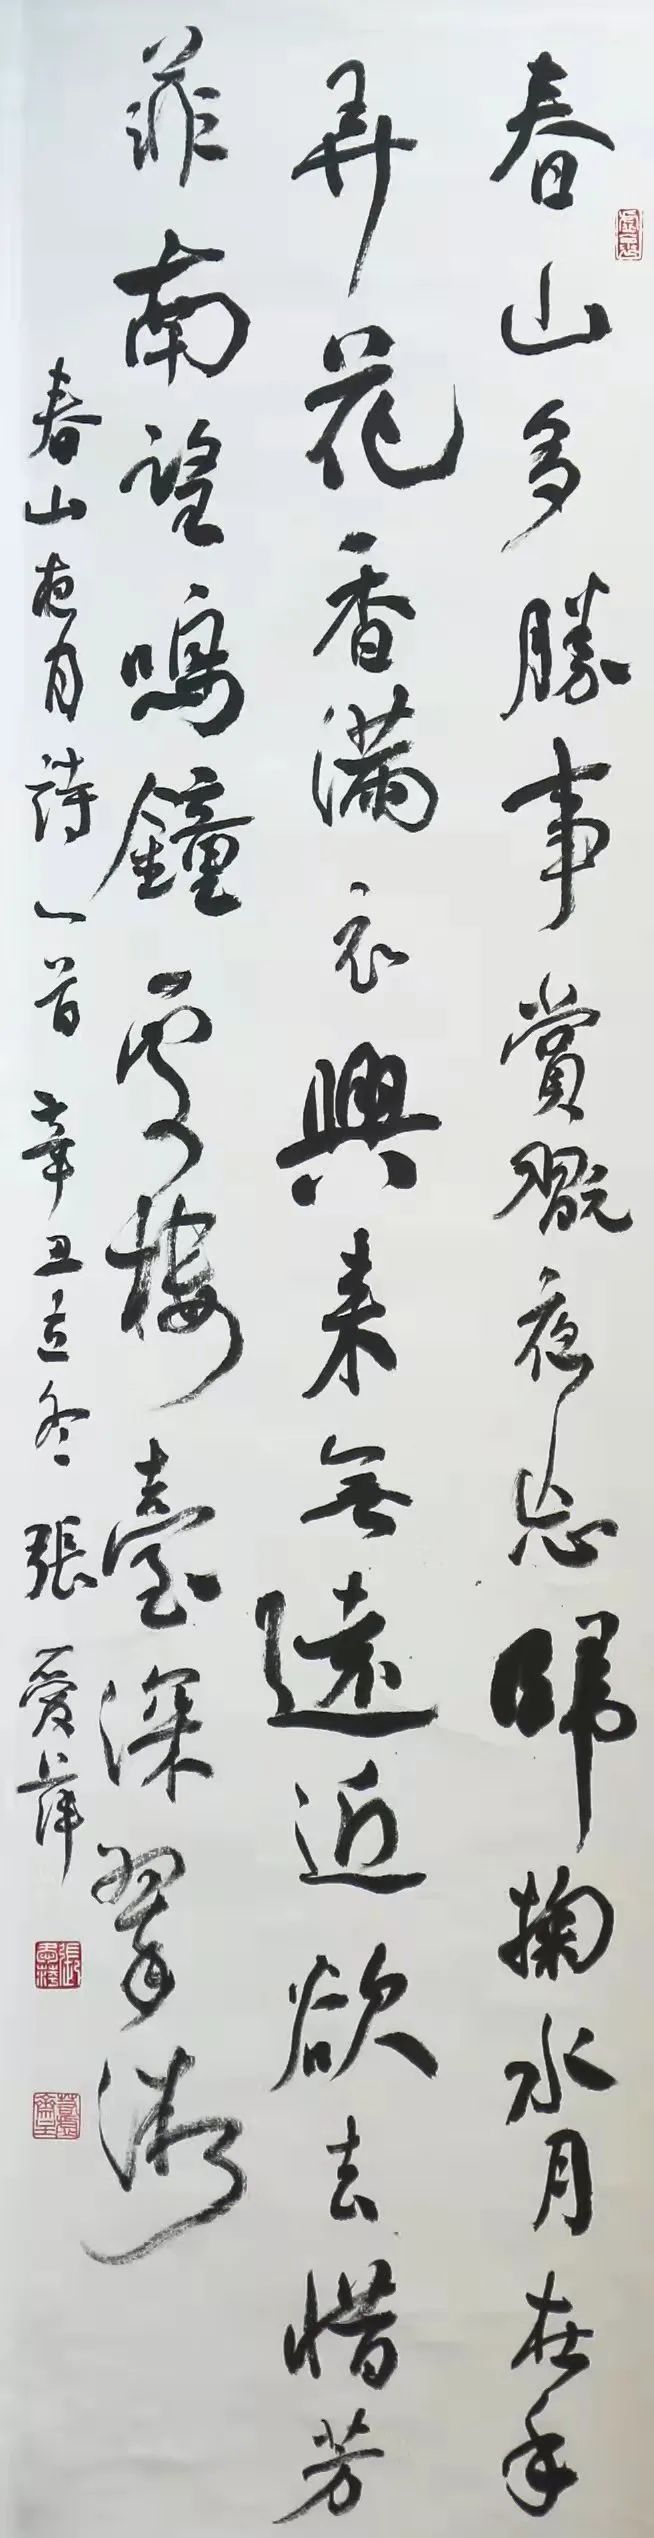 春山多勝事賞翫夜忘歸掬水月在手
弄花香滿衣興來無遠近欲去惜芳
菲南望鳴鐘處樓臺深翠微
春山夜月詩一首辛丑立冬張愛萍